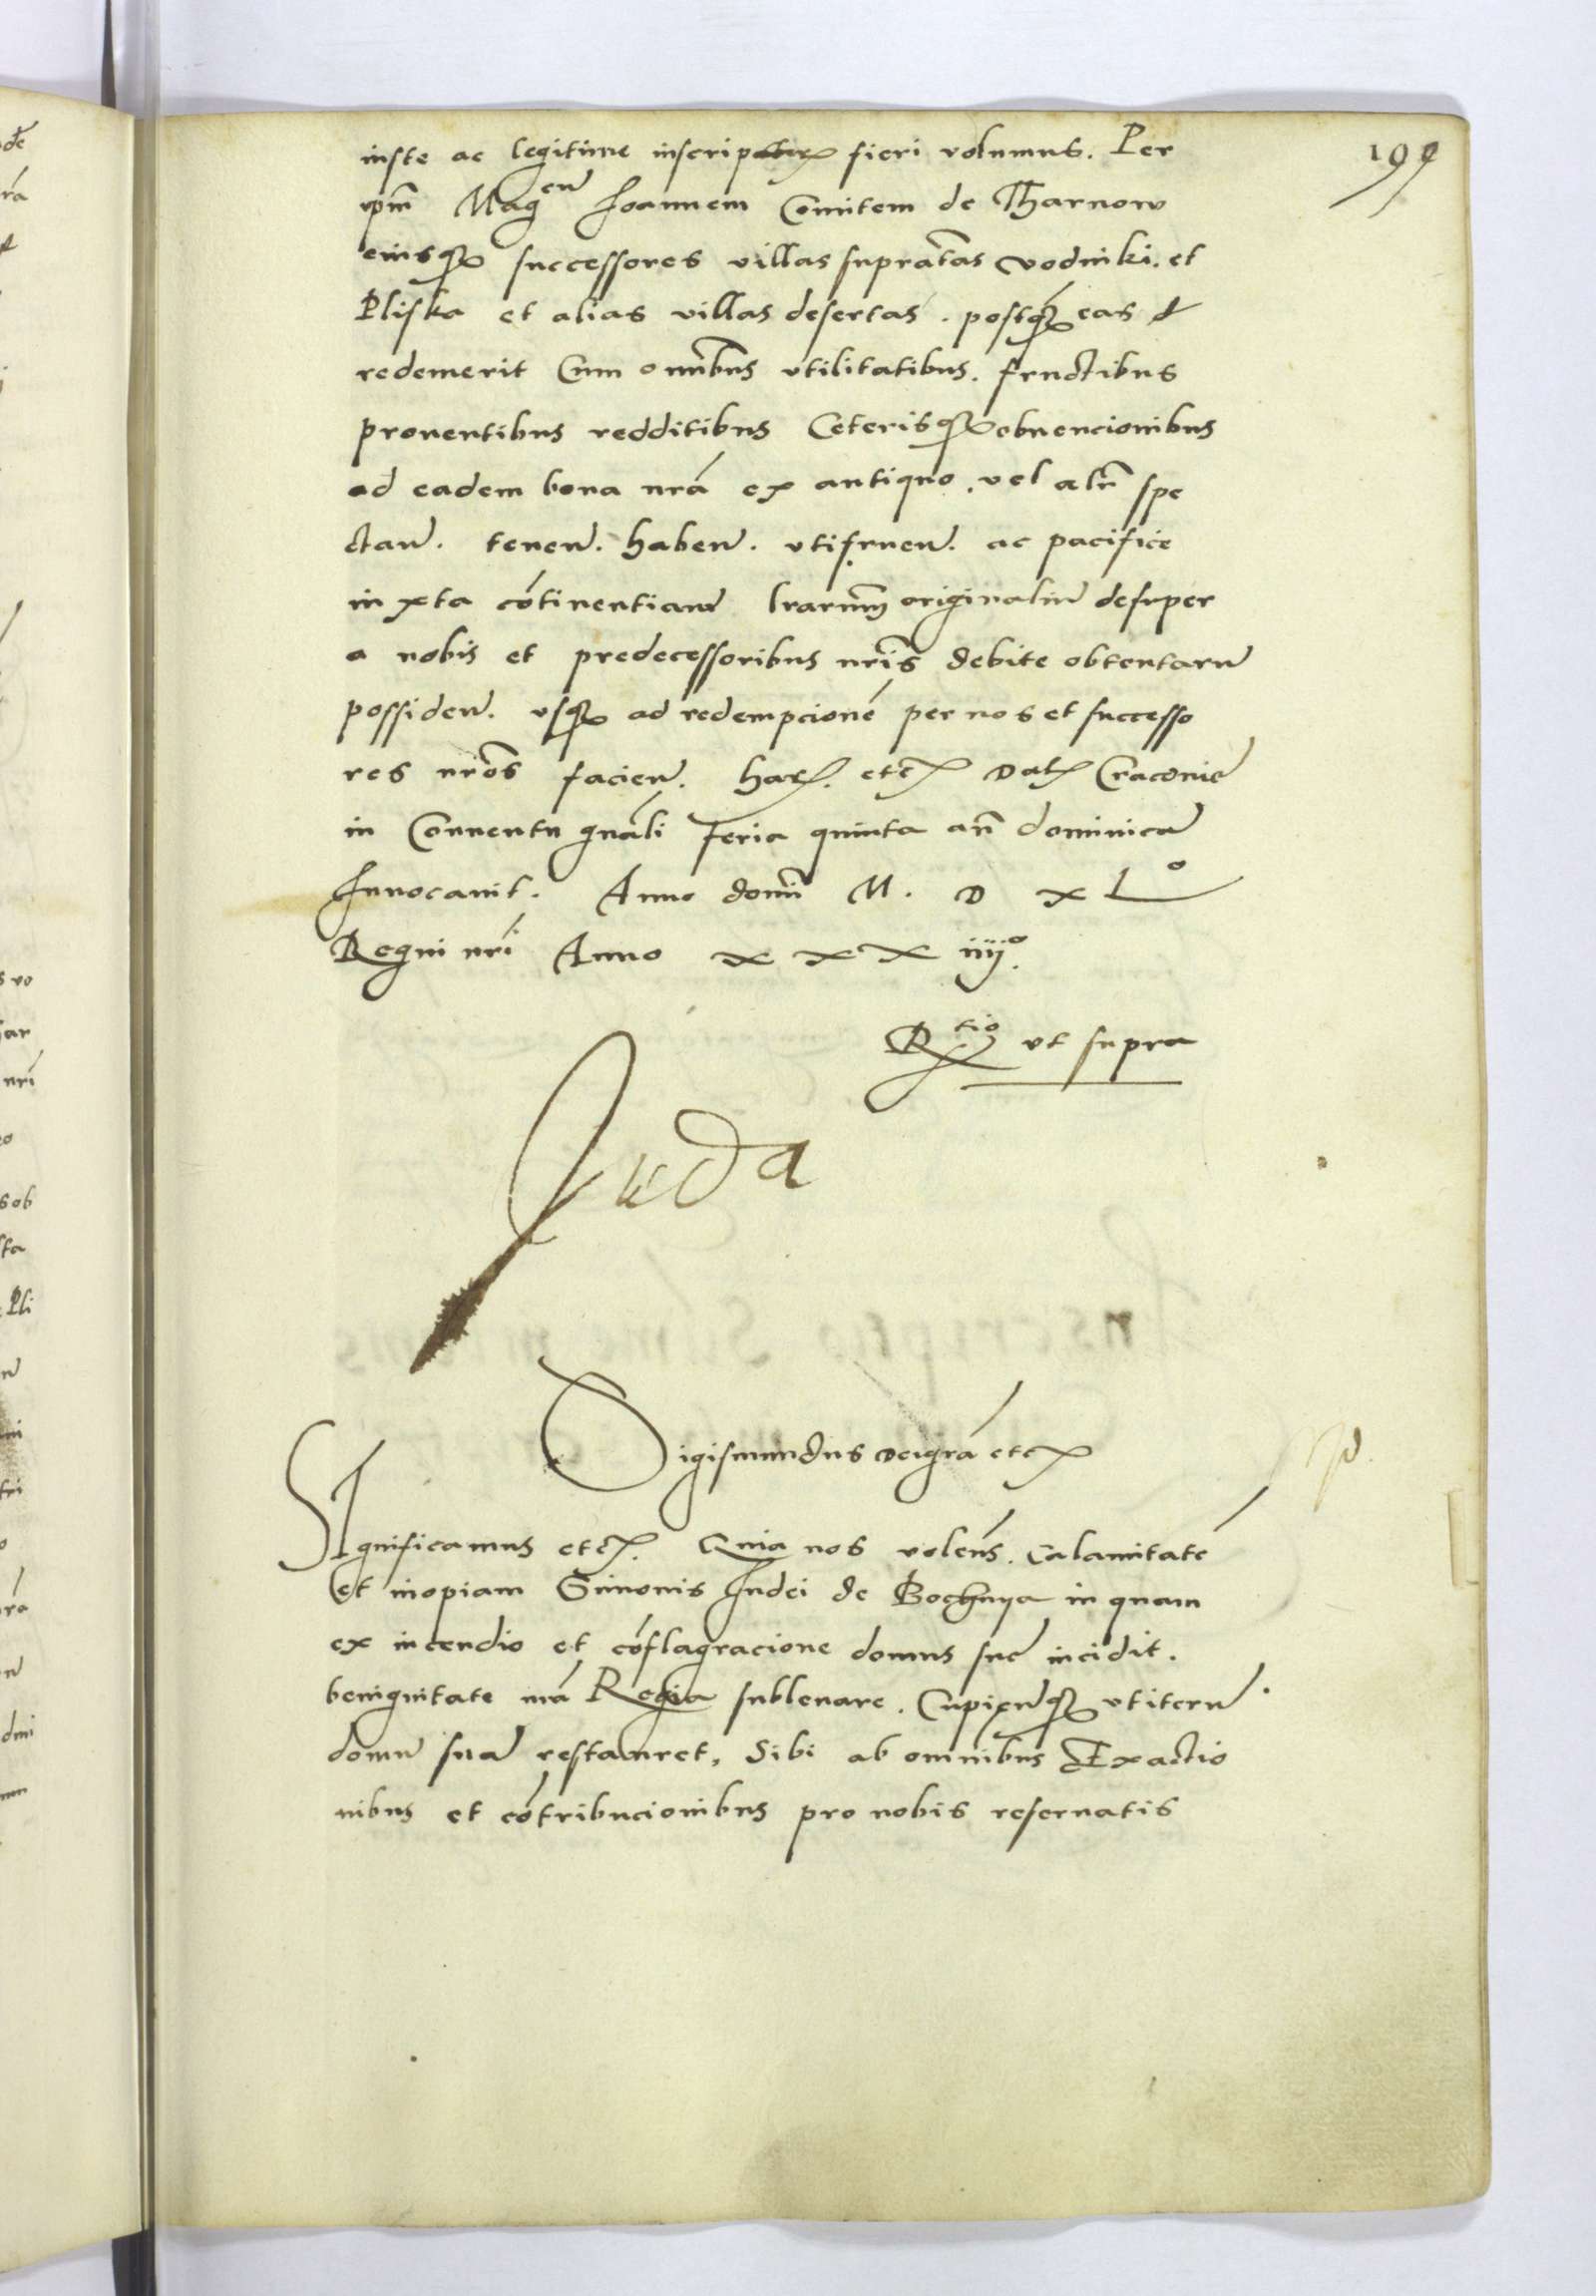 199
iuste ac legitime inscrip fieri volumus. Per
ipm̃ Mag̃en Joannem Comitem de Tharnow
eiusq3 successores villas supratas vodniki. et
Pliska et alias villas desertas. postq̃3 eas
redemerit Cum omĩbus vtilitatibus. fructibus
prouentibus redditibus Ceterisq3 obuencionibus
ad eadem bona nrã ex antiquo. vel alr̃ spe
ctañ. teneñ. habeñ. vtifrueñ. ac pacifice
iuxta cõtinentiam lrarum̃ originaliũ desuper
a nobis et predecessoribus nrĩs debite obtentarũ
possideñ. vsq3 ad redempcionẽ per nos et successo
res nrõs facieñ. Har. etc Dat Cracouie
in Conuentu gnãli feria quinta añ dominicã
Inuocauit. Anno domĩ M. D XLo
Regni nrĩ Anno xxx iiijo.
Rtio vt supra
Juda
Sigismundus dei grã etc
SIgnificamus etc. Quia nos voleñs. calamitatẽ
et inopiam Simonis Judei de Bochnya in quam
ex incendio et cõflagracione domus sue incidit.
benignitate nrã Regia subleuare. Cupieñq3 vt iterũ
domũ suã restauret, Sibi ab omnibus Exactio
nibus et cõtribucionibus pro nobis reseruatis